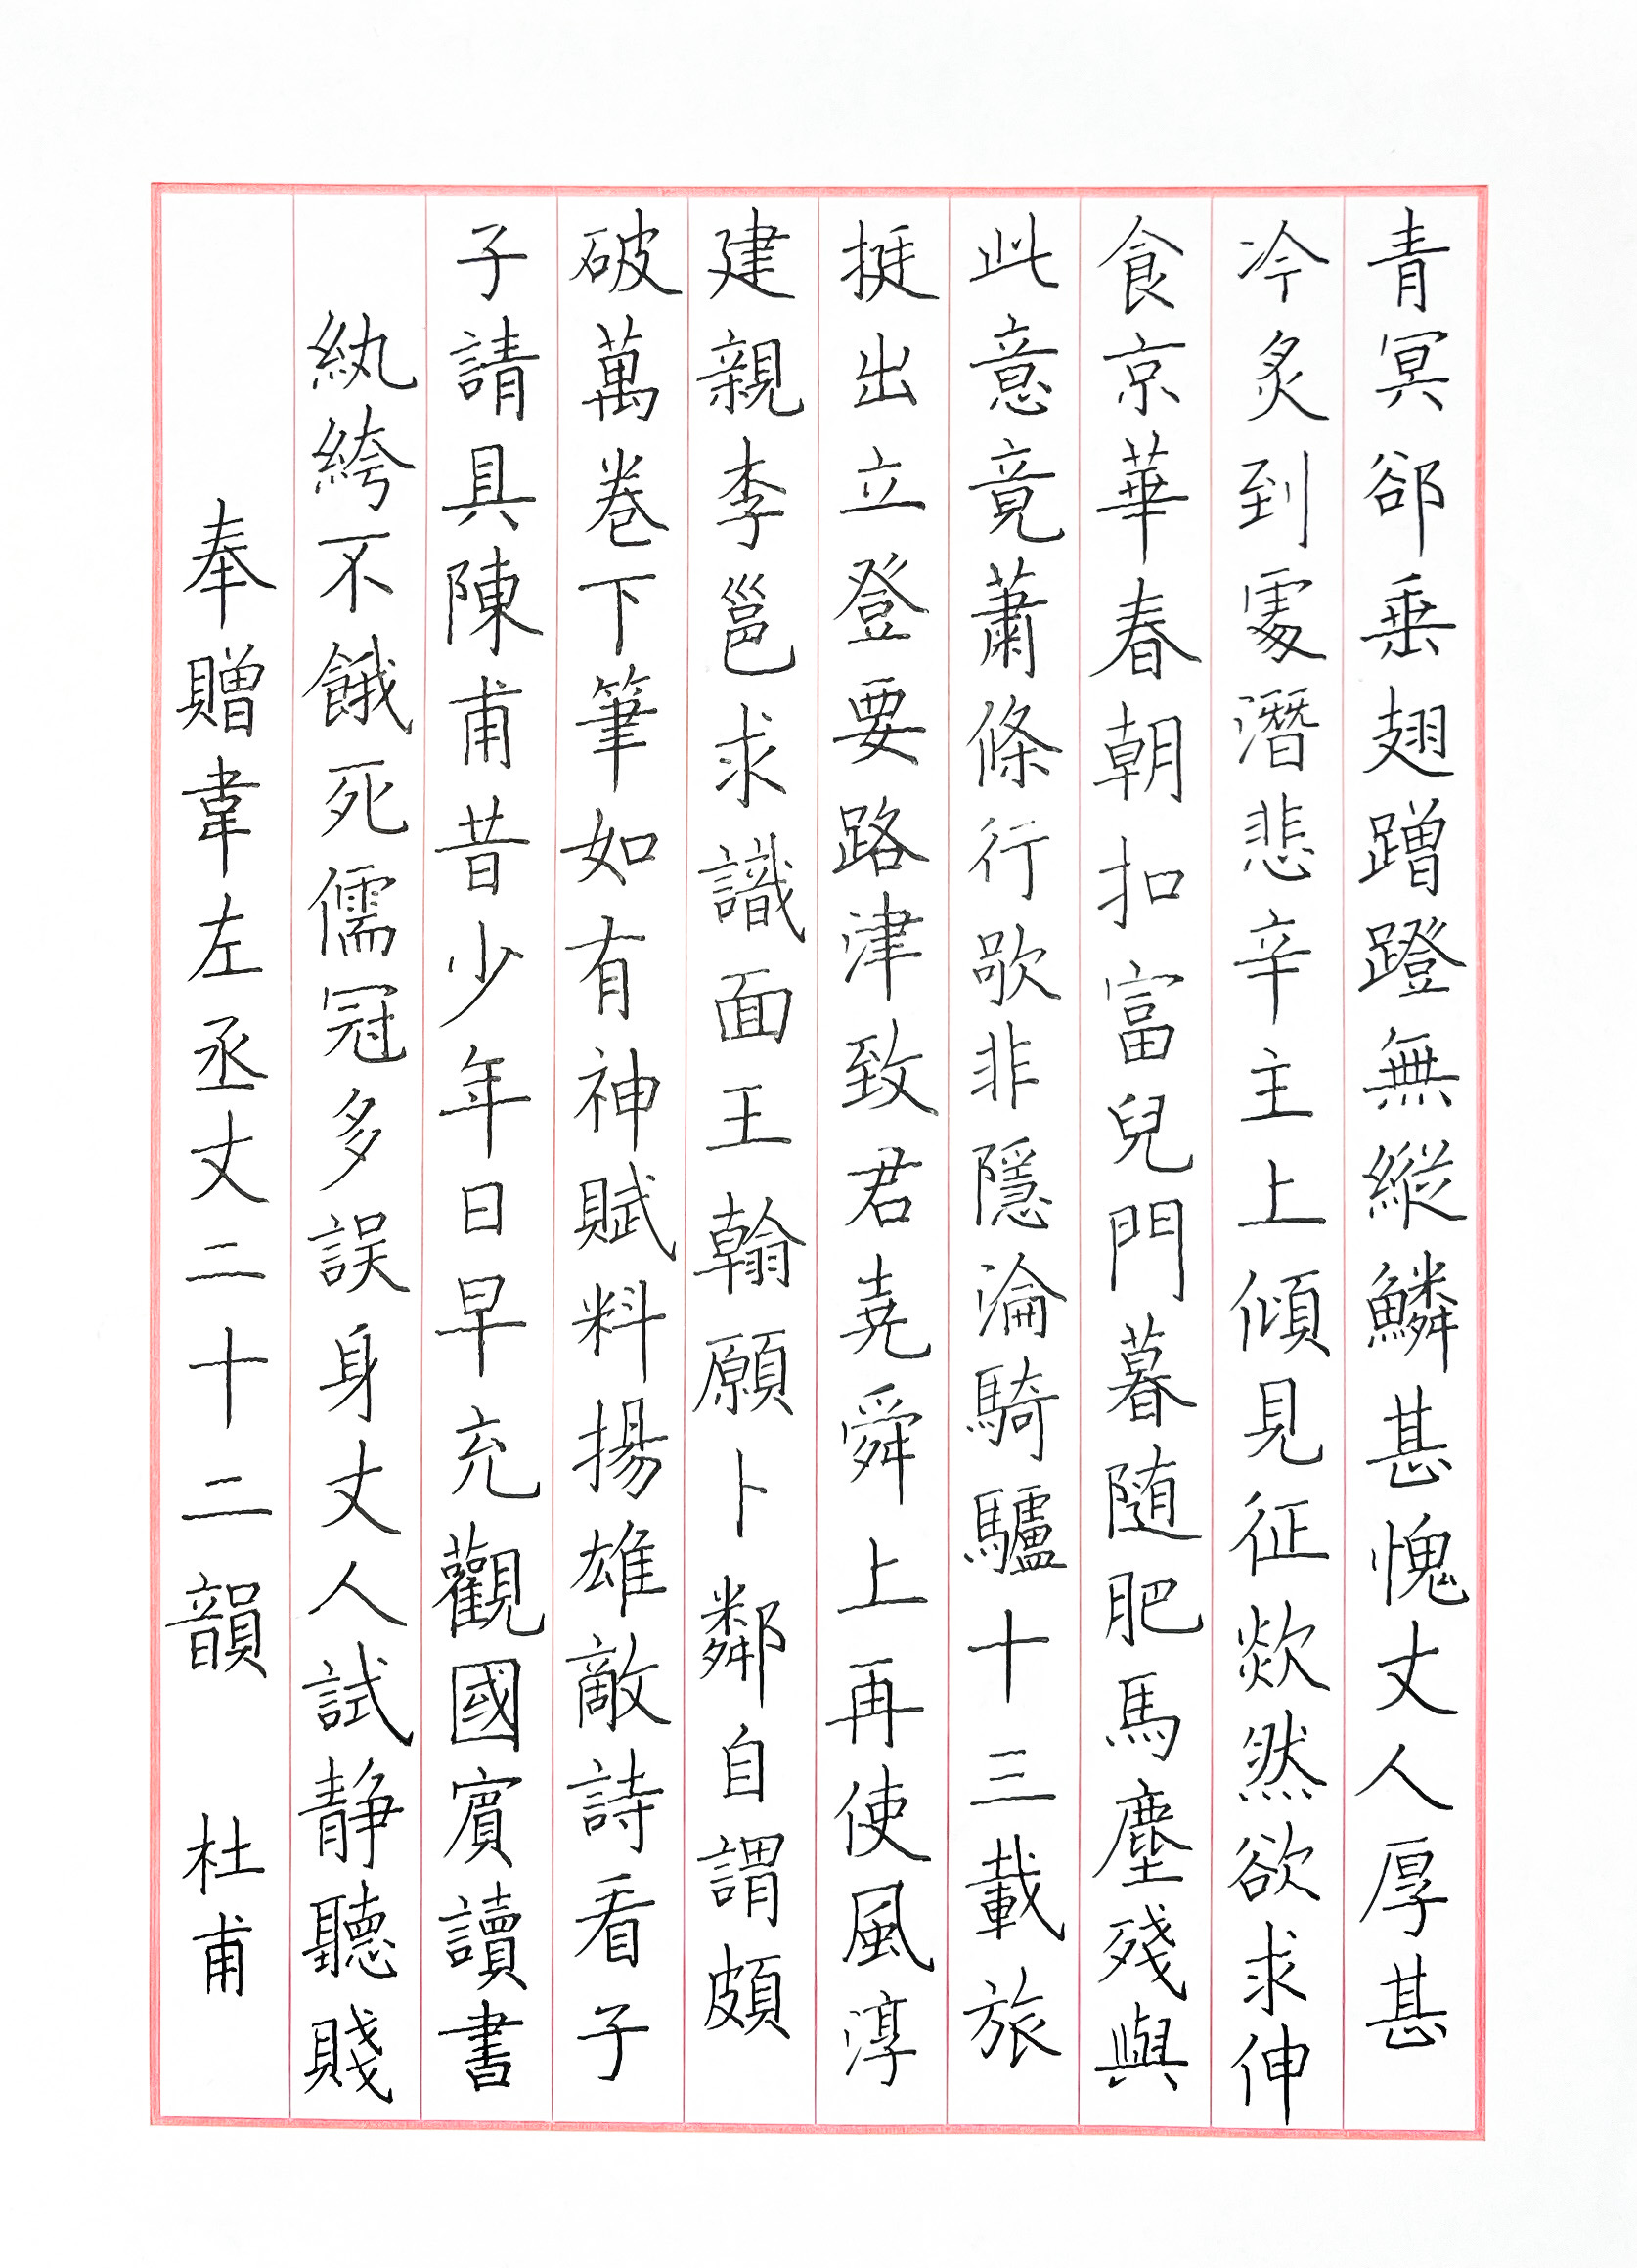 奉贈韋左丞丈二十二韻 杜甫
紈絝不餓死儒冠多誤身丈人試静聽賤
子請具陳甫昔少年日早充觀國賓讀書
破萬卷下筆如有神賦料揚雄敵詩看子
建親李邕求識面王翰願卜鄰自謂頗
挺出立登要路津致君堯舜上再使風淳
此意竟蕭條行歌非隱淪騎驢十三載旅
食京華春朝扣富兒門暮随肥馬塵殘與
冷炙到處潛悲辛主上傾見征欻然欲求伸
青冥卻垂翅蹭蹬無縱鱗甚愧丈人厚甚